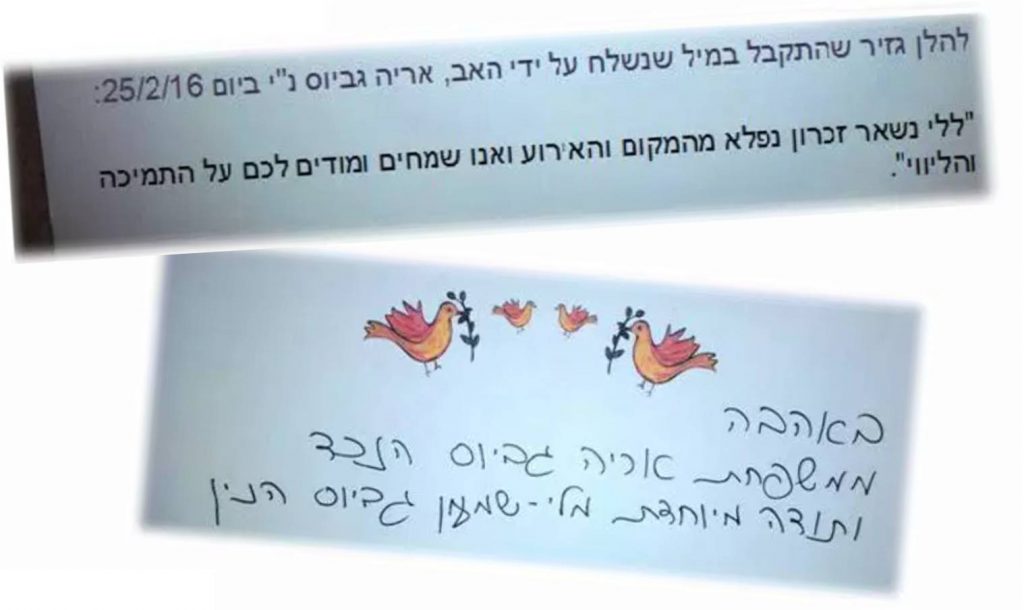 להלן גזיר שהתקבל במיל שנשלח על ידי האב, אריה גביוס נ"י ביום 25/2/16:
"ללי נשאר זכרון נפלא מהמקום והאירוע ואנו שמחים ומודים לכם על התמיכה
והליווי".
באהבה
ממשפחת אריה גביוס הנכד
ותודה מיוחדת מלי-שמעון גביוס הנין